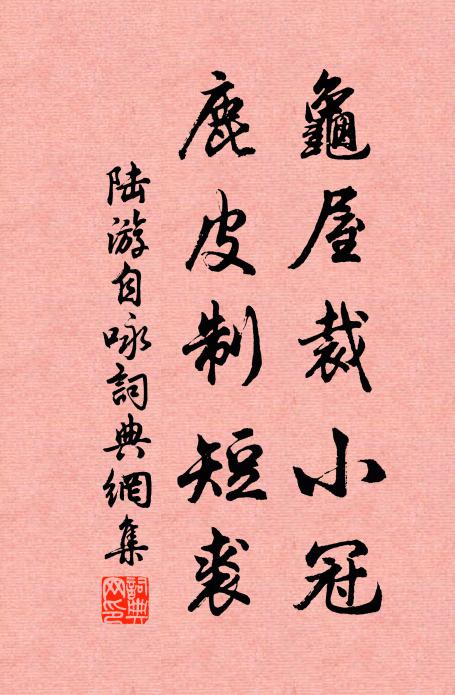 龜屋裁小冠
鹿皮制短裘
陆游自咏詞典網集
詞典网印